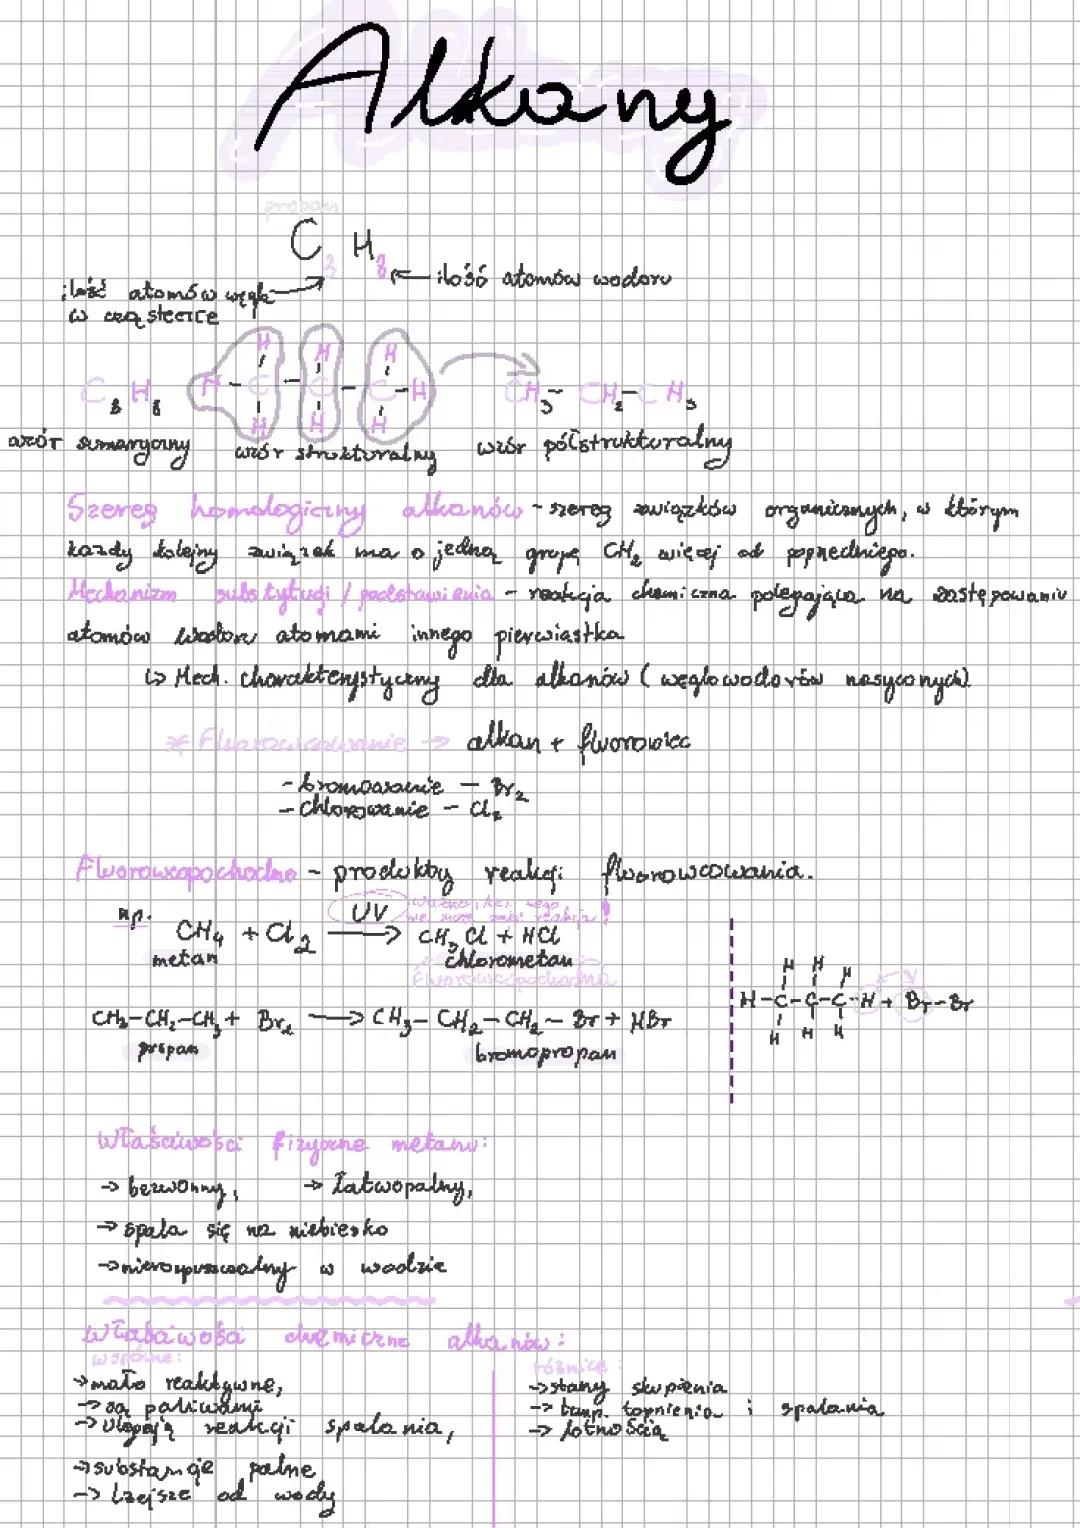 Alkany
propan
C₃ H₈
ilość atomów węgla
w cząsteczce
ilość atomów wodoru
C₃ H₈
H H H
H-C-C-C-H
H H H
CH₃-CH₂-CH₃
wzór sumaryczny
wzór strukturalny
wzór półstrukturalny
Szereg homologiczny alkanów - szereg związków organicznych, w którym
każdy kolejny związek ma o jedną grupę CH₂ więcej od poprzedniego.
Mechanizm substytucji / podstawienia - reakcja chemiczna polegająca na zastępowaniu
atomów wodoru atomami innego pierwiastka
↳ Mech. charakterystyczny dla alkanów (węglowodorów nasyconych)
* Fluorowcowanie → alkan + fluorowiec
- bromowanie - Br₂
- Chlorowanie - Cl₂
Fluorowcopochodne - produkty reakcji fluorowcowania.
np.
CH₄ + Cl₂ UV→ CH₃Cl + HCl
metan
chlorometan
Fluorowcopochodna
CH₃-CH₂-CH₃ + Br₂ → CH₃-CH₂-CH₂-Br + HBr
propan
bromopropan
H H H
H-C-C-C-H + Br-Br
H H H
Właściwości fizyczne metanu:
→ bezwonny, → łatwopalny,
→ spala się na niebiesko
→ nierozpuszczalny w wodzie
Właściwości chemiczne alkanów:
wspólne:
→ mało reaktywne,
→ są paliwami
→ Ulegają reakcji spalania,
→ substancje palne
→ lżejsze od wody
różnice:
→ stany skupienia
→ temp. topnienia i spalania
→ lotnością